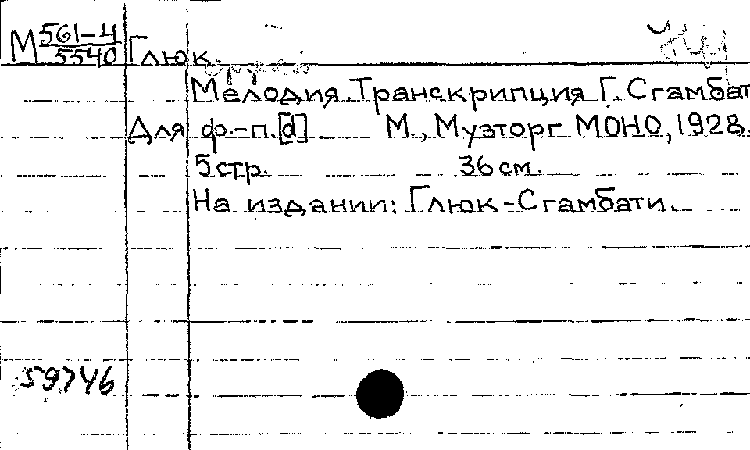 М 561-4
5540
Глюк.
Мелодия. Транскрипция Г. Сгамбат
Для ф.-п. [d] М., Музторг МОНО, 1928.
5 стр. 36 см.
На издании: Глюк-Сгамбати.
59746